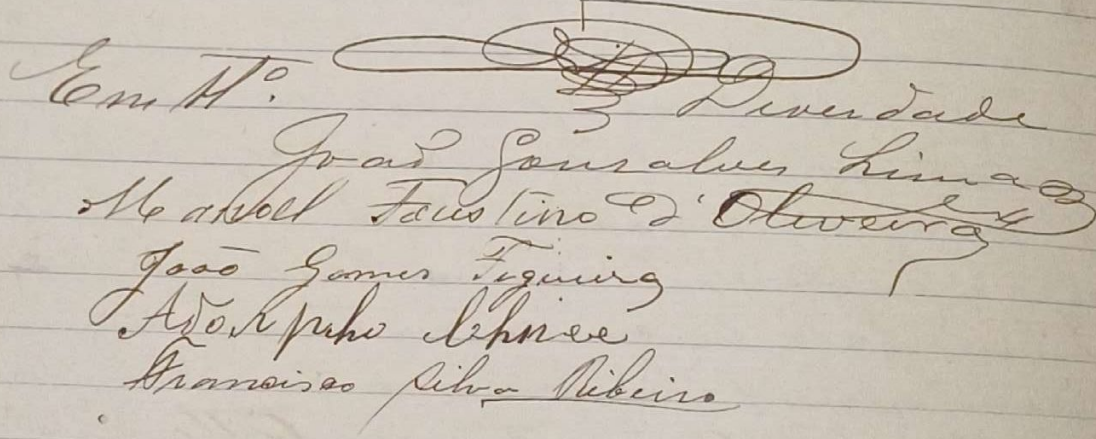 Em tt.º De verdade
João Gonsalves Lima
Manoel Faustino d'Oliveira
João Gomes Figueira
Adolpho
Francisco Silva Ribeiro